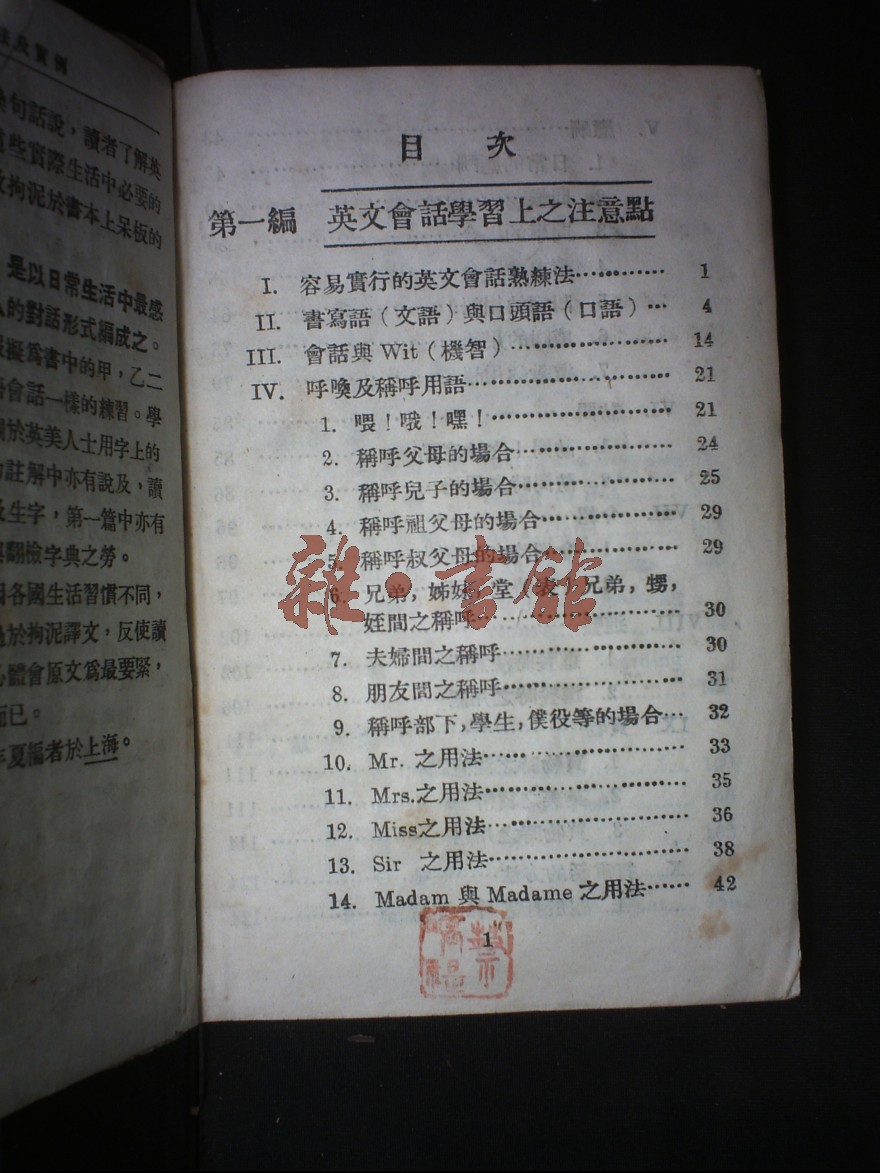 及實例
句話說，讀者了解英
些實際生活中必要的
拘泥於書本上呆板的
是以日常生活中最感
人的對話形式編成之。
擬爲書中的甲，乙二
會話一樣的練習。學
於英美人士用字上的
註解中亦有說及，讀
生字，第一篇中亦有
翻檢字典之勞。
各國生活習慣不同，
於拘泥譯文，反使讀
體會原文爲最要緊，
而已。
夏編者於上海。
目次
第一編 英文會話學習上之注意點
I. 容易實行的英文會話熟練法………… 1
II. 書寫語（文語）與口頭語（口語）… 4
III. 會話與Wit（機智）………………… 14
IV. 呼喚及稱呼用語………………………… 21
1. 喂！哦！嘿！………………………… 21
2. 稱呼父母的場合…………………… 24
3. 稱呼兒子的場合…………………… 25
4. 稱呼祖父母的場合………………… 29
5. 稱呼叔父母的場合………………… 29
6. 兄弟，姊妹，堂（表）兄弟，甥，
姪間之稱呼………………………… 30
7. 夫婦間之稱呼……………………… 30
8. 朋友間之稱呼……………………… 31
9. 稱呼部下，學生，僕役等的場合… 32
10. Mr. 之用法………………………… 33
11. Mrs.之用法………………………… 35
12. Miss之用法………………………… 36
13. Sir 之用法………………………… 38
14. Madam 與 Madame 之用法…… 42
1
雜·書館